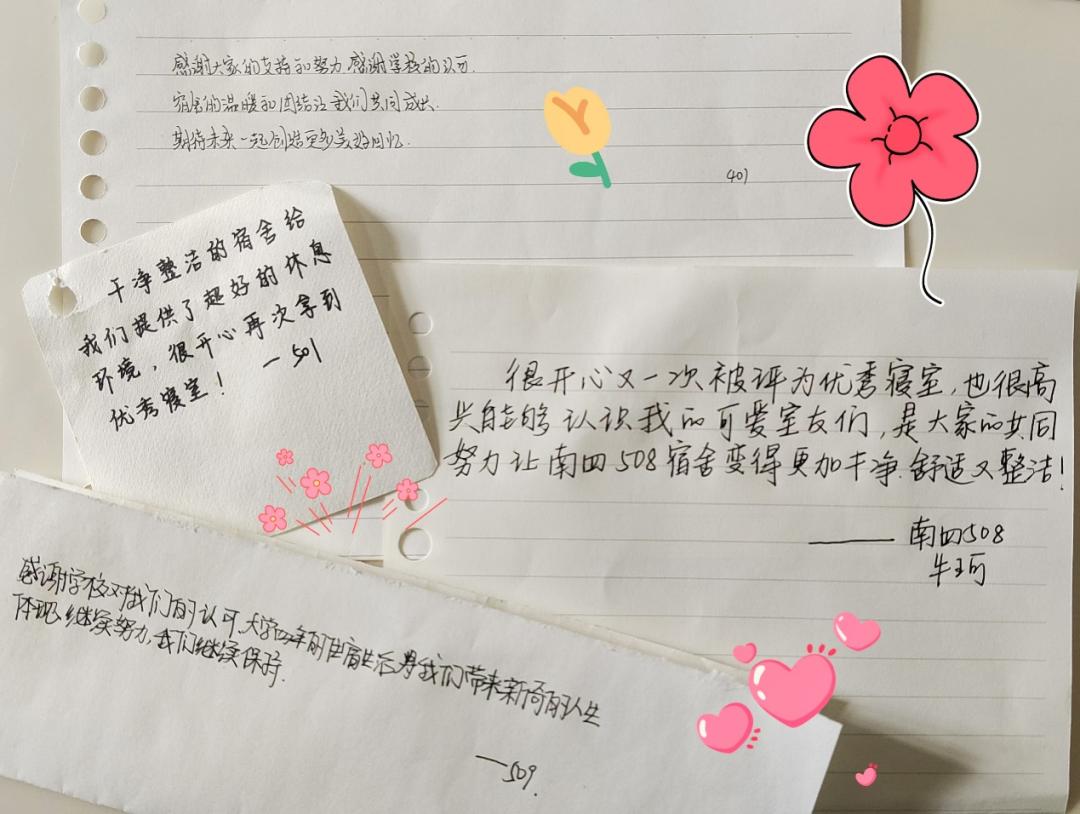 感谢大家的支持和努力,感谢学校的认可.
宿舍的温暖和团结让我们共同成长.
期待未来一起创造更多美好回忆.
401
干净整洁的宿舍给
我们提供了超好的休息
环境,很开心再次拿到
优秀寝室!
—501
很开心又一次被评为优秀寝室,也很高
兴自能够认识我的可爱室友们,是大家的共同
努力让南四508宿舍变得更加干净.舒适又整洁!
——南四508
牛珂
感谢学校对我们的认可.大学四年的住宿生活男我们带来新奇的人生
体现,继续努力,我们继续保持.
—509.